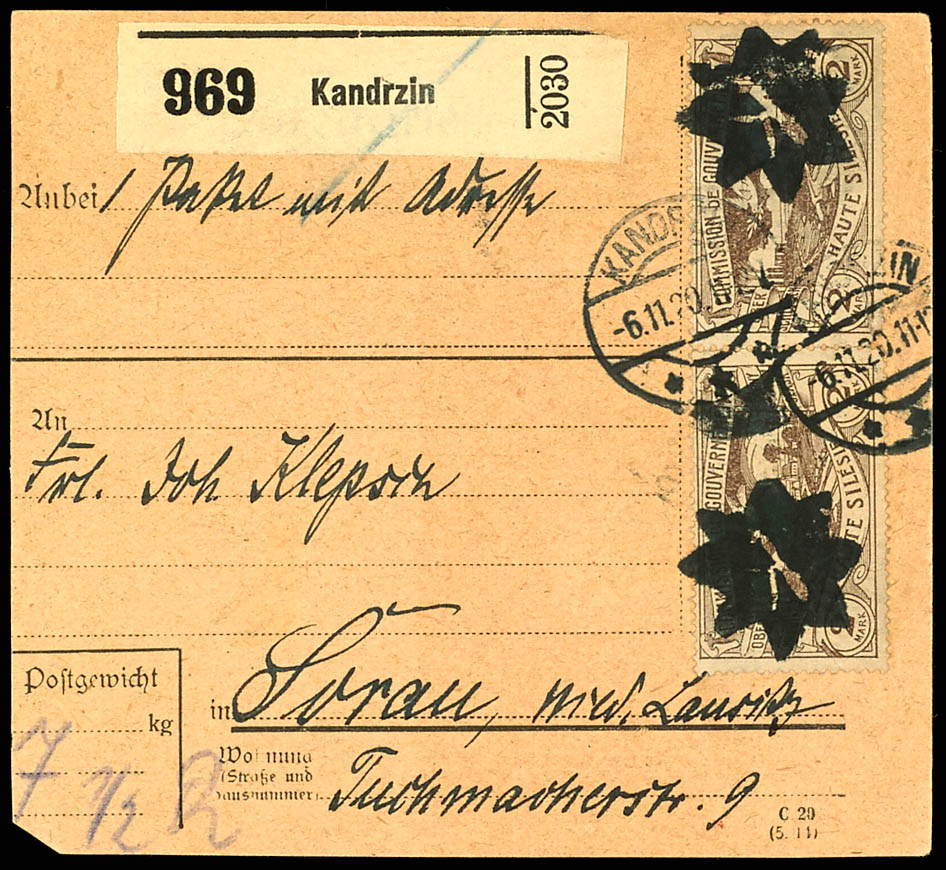 969 Kandrzin 2030
Anbei 1 Paket mit Adresse
KANDR
-6.11.20.
ZIN
-6.11.20.11-12
COMMISSION DE GOUV
HAUTE SILESIE
2 MARK
2 MARK
GOUVERNE
TE SILESIE
2
2 MARK
An
Frl. Joh Klepsch
Postgewicht
kg
7 1/2
in Sorau, Nied. Lausitz
Wohnung
(Straße und
Hausnummer)
Tuchmacherstr. 9
C 29
(5. 11)